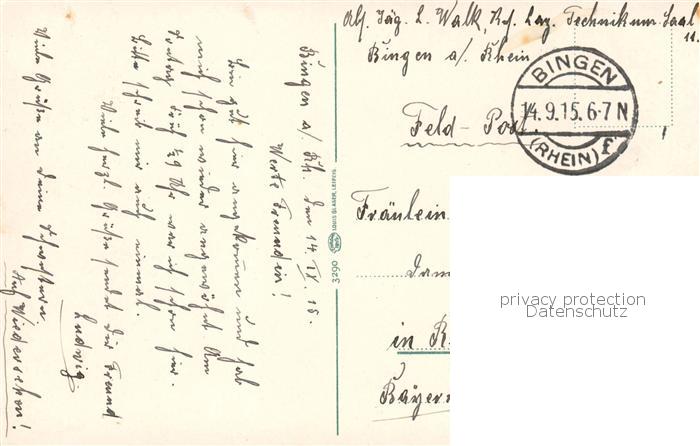 Abs. Jäg. L. Walk, Res. Laz. Technikum Saal
11.
Bingen a/ Rhein
BINGEN
14.9.15.6-7 N
(RHEIN)
Feld-Post.
Fräulein
in
Bayern
3290
LOUIS GLASER, LEIPZIG
Bingen a/ Rh. den 14. IX. 15.
Werte Freundin!
Bin gut hier angekommen und hab
mich schon wieder eingewöhnt. Am
früh ½9 Uhr war ich schon hier.
Bitte schreib mir auch einmal.
Viele herzl. Grüße sendet Dir Freund
Ludwig
Viele Grüße an Deine Schwestern
Auf Wiedersehen!
privacy protection
Datenschutz